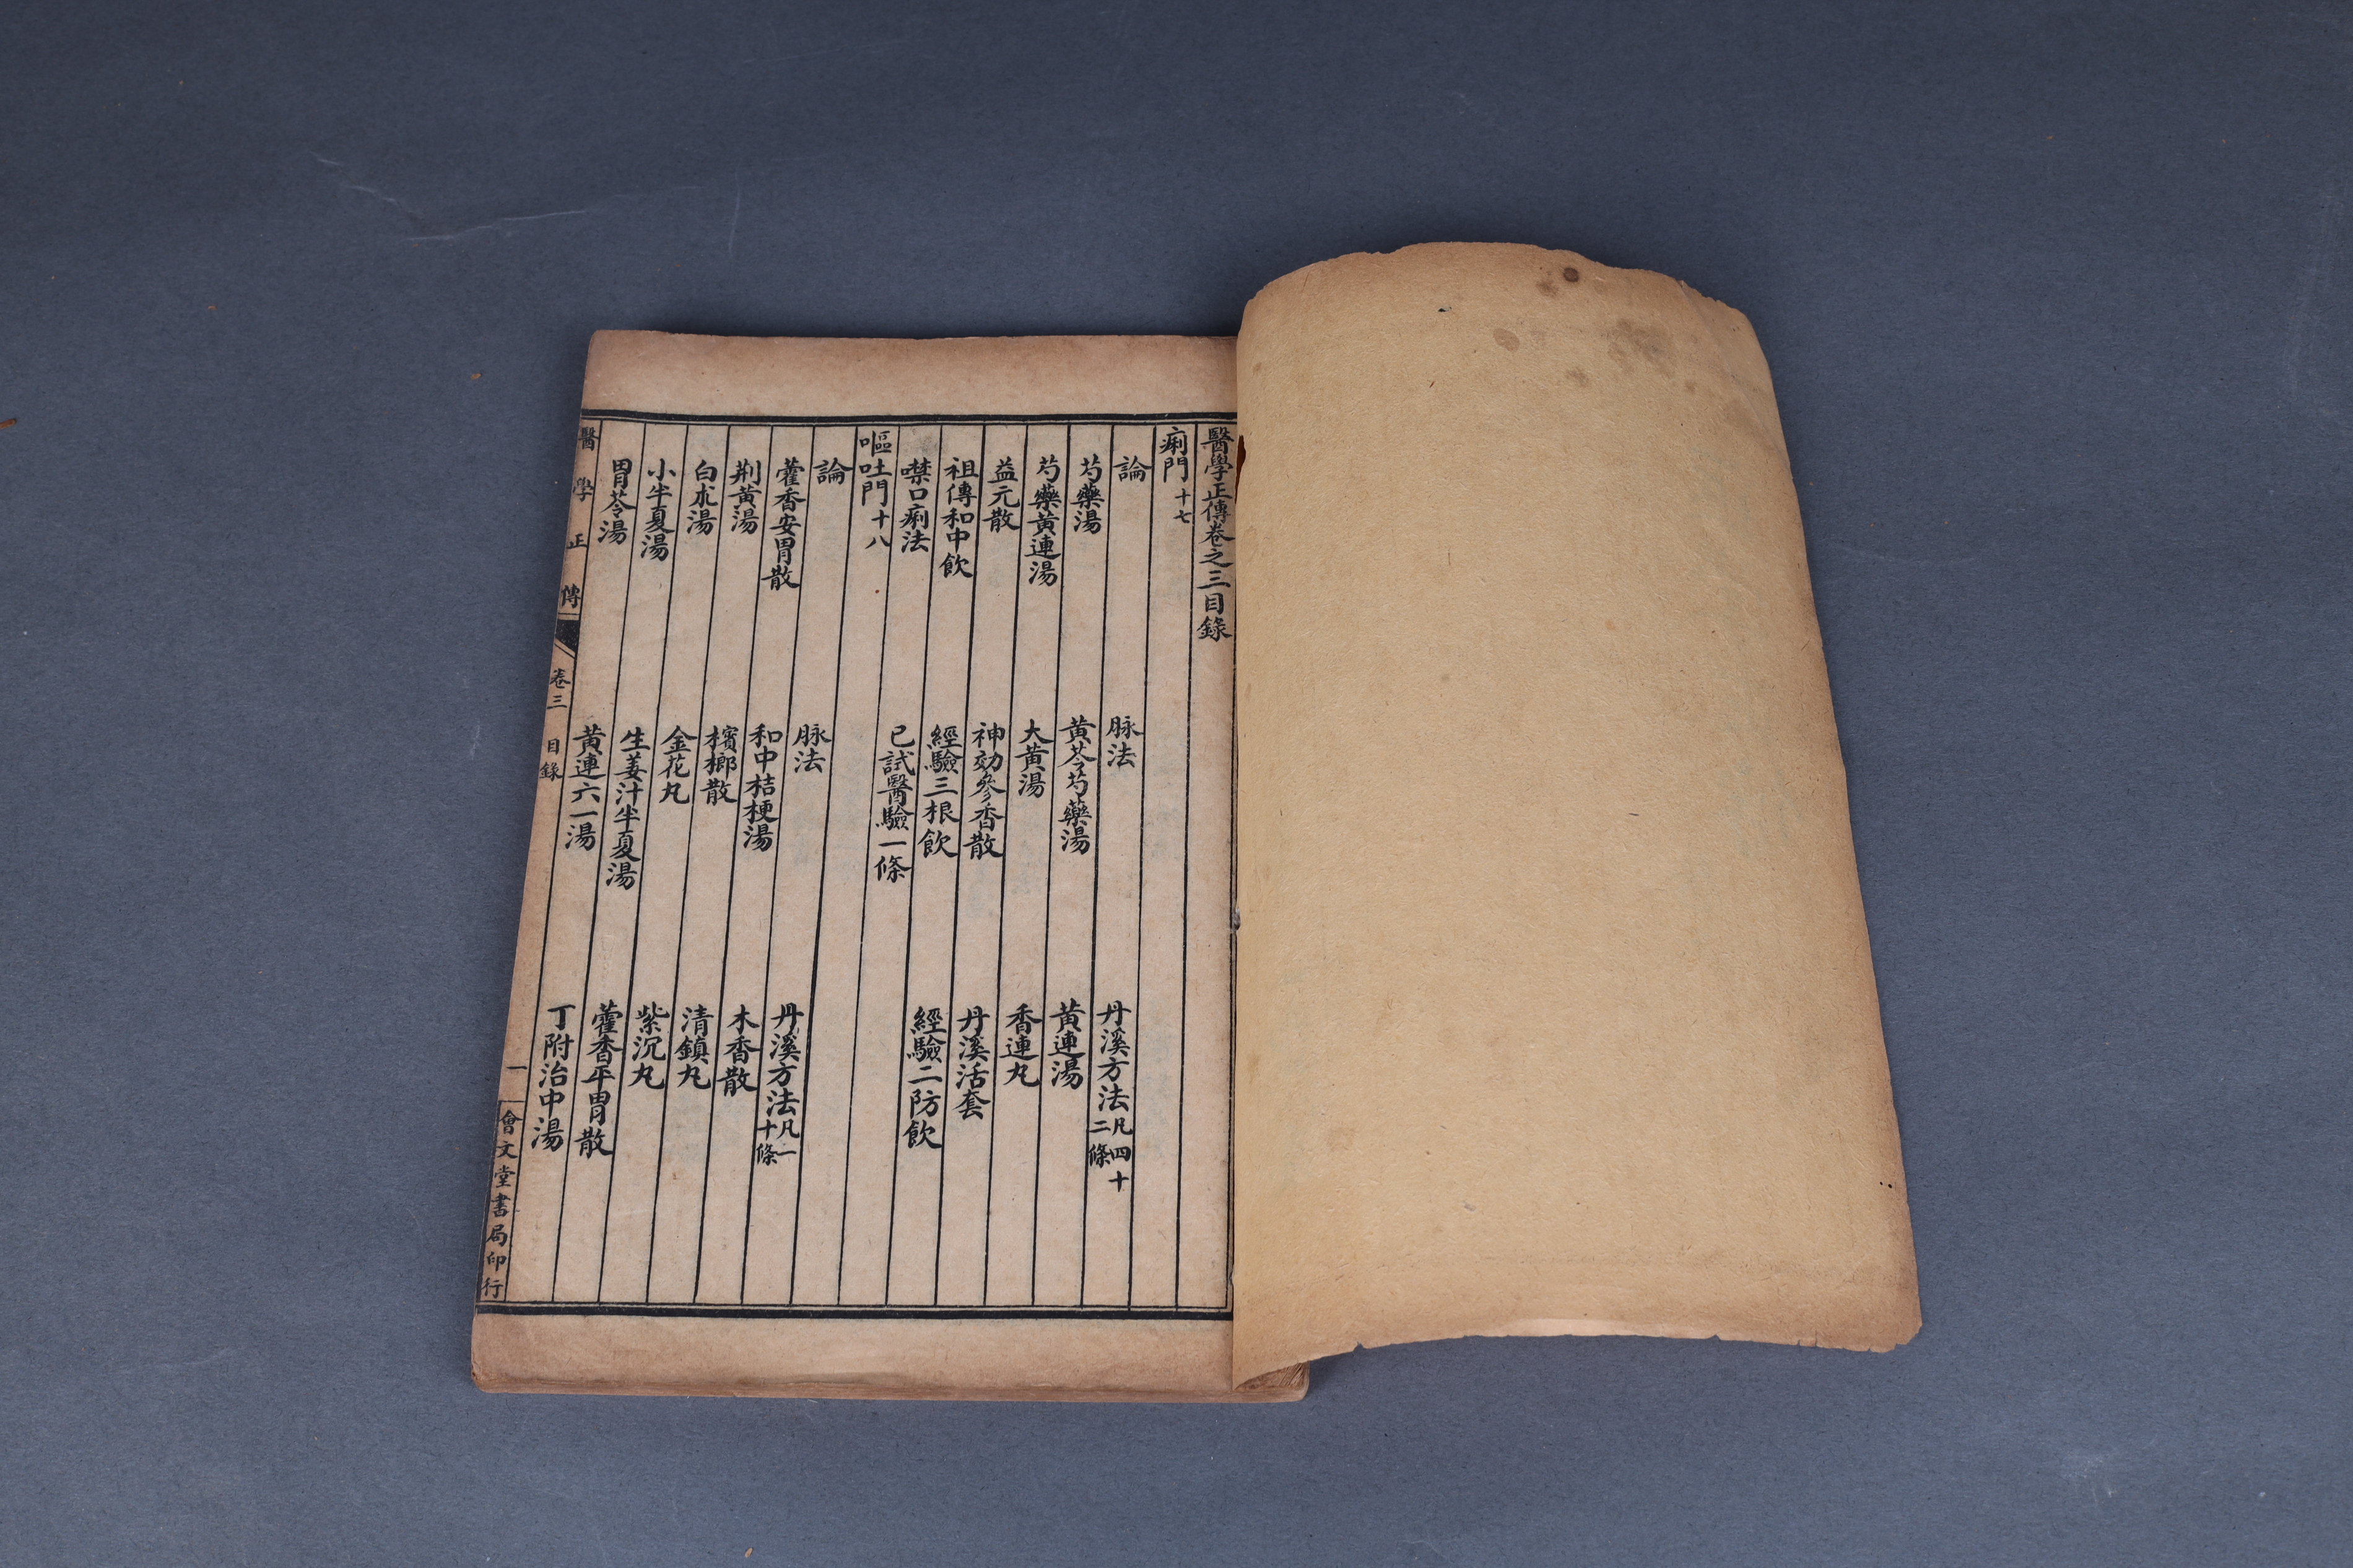 醫學正傳卷之三目錄
痢門十七
論 脉法 丹溪方法凡四十二條
芍藥湯 黃芩芍藥湯 黃連湯
芍藥黃連湯 大黃湯 香連丸
益元散 神効參香散 丹溪活套
祖傳和中飲 經驗三根飲 經驗二防飲
噤口痢法 已試醫驗一條
嘔吐門十八
論 脉法 丹溪方法凡一十條
藿香安胃散 和中桔梗湯 木香散
荆黃湯 檳榔散 清鎮丸
白朮湯 金花丸 紫沉丸
小半夏湯 生姜汁半夏湯 藿香平胃散
胃苓湯 黃連六一湯 丁附治中湯
醫學正傳 卷三 目錄 一 會文堂書局印行